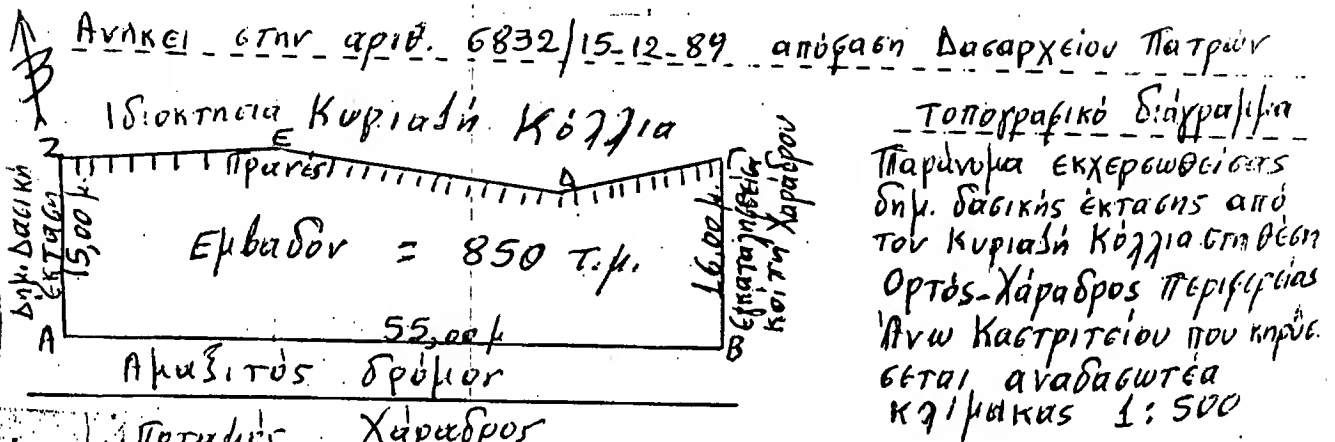 Ανήκει στην αριθ. 6832/15-12-89 απόφαση Δασαρχείου Πατρών
Β
Ιδιοκτησία Κυριαζή Κόλλια
Ζ Ε Δ Γ
Πρανές
Δημ. Δασική
έκταση
15,00 μ.
Εμβαδόν = 850 τ.μ.
16,00 μ.
Εγκαταληφθείσα
κοίτη Χαράδρου
Α 55,00 μ Β
Αμαξιτός δρόμος
Ποταμός Χάραδρος
Τοπογραφικό διάγραμμα
Παράνομα εκχερσωθείσας
δημ. δασικής έκτασης από
τον Κυριαζή Κόλλια στη θέση
Ορτός-Χάραδρος περιφερείας
Άνω Καστριτσίου που κηρύσ.
σεται αναδασωτέα
κλίμακας 1:500